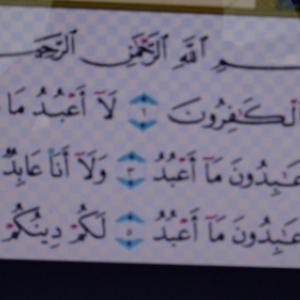 ـسم ٱللَّهِ ٱلرَّحْمَٰنِ ٱلرَّحـ
ٱلْكَٰفِرُونَ ١ لَآ أَعْبُدُ مَا
عَٰبِدُونَ مَآ أَعْبُدُ ٣ وَلَآ أَنَا۠ عَابِدٌ
عَٰبِدُونَ مَآ أَعْبُدُ ٥ لَكُمْ دِينُكُمْ